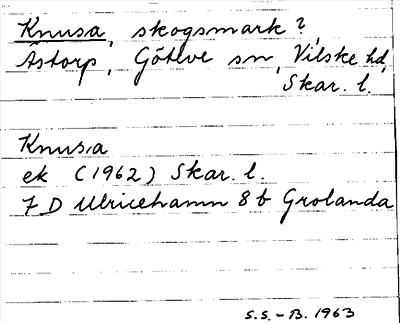 Knusa, skogsmark?,
Åstorp, Göteve sn, Vilske hd,
Skar. l.
Knusa
ek (1962) Skar. l.
7 D Ulricehamn 8 b Grolanda
S.S.-B. 1963